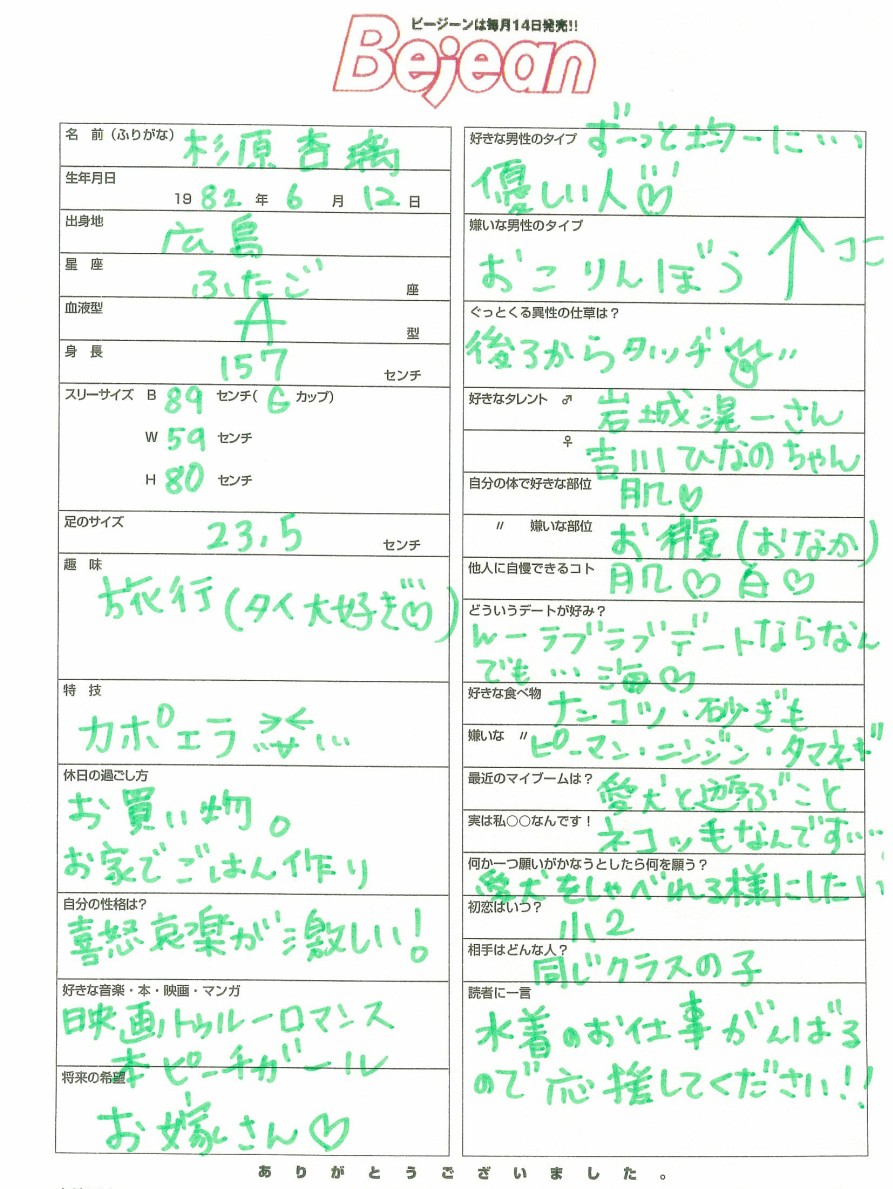 ビージーンは毎月14日発売!!
Bejean
名 前(ふりがな) 杉原杏璃
生年月日
19 82 年 6 月 12 日
出身地 広島
星 座 ふたご 座
血液型 A 型
身 長 157 センチ
スリーサイズ B 89 センチ( G カップ)
W 59 センチ
H 80 センチ
足のサイズ 23.5 センチ
趣 味
旅行(タイ大好き♡)
特 技
カポエラ
休日の過ごし方
お買い物。
お家でごはん作り
自分の性格は?
喜怒哀楽が激しい!
好きな音楽・本・映画・マンガ
映画トゥルーロマンス
本ピーチガール
将来の希望
お嫁さん♡
好きな男性のタイプ ずーっと均一に…
優しい人♡
嫌いな男性のタイプ
おこりんぼう ↑ココ
ぐっとくる異性の仕草は?
後ろからタッチ
好きなタレント ♂ 岩城滉一さん
♀ 吉川ひなのちゃん
自分の体で好きな部位 肌♡
〃 嫌いな部位 お腹(おなか)
他人に自慢できるコト 肌♡白♡
どういうデートが好み?
んーラブラブデートならなん
でも…海♡
好きな食べ物 ナンコツ・砂ぎも
嫌いな 〃 ピーマン・ニンジン・タマネギ
最近のマイブームは? 愛犬と遊ぶこと
実は私○○なんです! ネコッ毛なんです…
何か一つ願いがかなうとしたら何を願う?
愛犬をしゃべれる様にしたい
初恋はいつ? 小2
相手はどんな人?
同じクラスの子
読者に一言
水着のお仕事がんばる
ので応援してください!!
ありがとうございました。